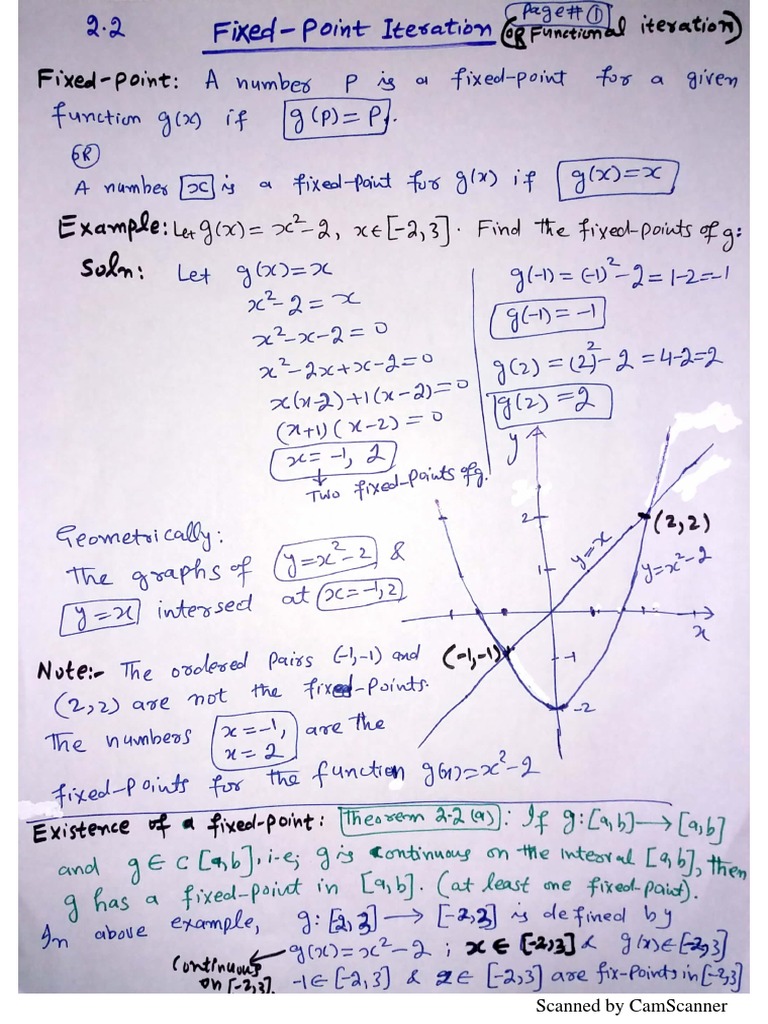 Page # 1
2.2 Fixed-Point Iteration (OR Functional iteration)
Fixed-Point: A number P is a fixed-point for a given
function g(x) if g(P) = P.
OR
A number x is a fixed-point for g(x) if g(x) = x
Example: Let g(x) = x² - 2, x ∈ [-2, 3]. Find the fixed-points of g:
Soln: Let g(x) = x
x² - 2 = x
x² - x - 2 = 0
x² - 2x + x - 2 = 0
x(x-2) + 1(x-2) = 0
(x+1)(x-2) = 0
x = -1, 2
Two fixed-points of g.
g(-1) = (-1)² - 2 = 1-2 = -1
g(-1) = -1
g(2) = (2)² - 2 = 4-2 = 2
g(2) = 2
Geometrically:
The graphs of y = x² - 2 &
y = x intersed at x = -1, 2
y
2
(2, 2)
y = x
y = x² - 2
1
x
(-1, -1)
-1
-2
Note:- The ordered pairs (-1, -1) and
(2, 2) are not the fixed-points.
The numbers x = -1, are the
x = 2
fixed-points for the function g(x) = x² - 2
Existence of a fixed-point: Theorem 2.2 (a): If g: [a, b] → [a, b]
and g ∈ C [a, b], i.e; g is continuous on the interval [a, b], then
g has a fixed-point in [a, b]. (at least one fixed-point).
In above example, g: [-2, 3] → [-2, 3] is defined by
g(x) = x² - 2 ; x ∈ [-2, 3] & g(x) ∈ [-2, 3]
Continuous
on [-2, 3]. -1 ∈ [-2, 3] & 2 ∈ [-2, 3] are fix-points in [-2, 3]
Scanned by CamScanner